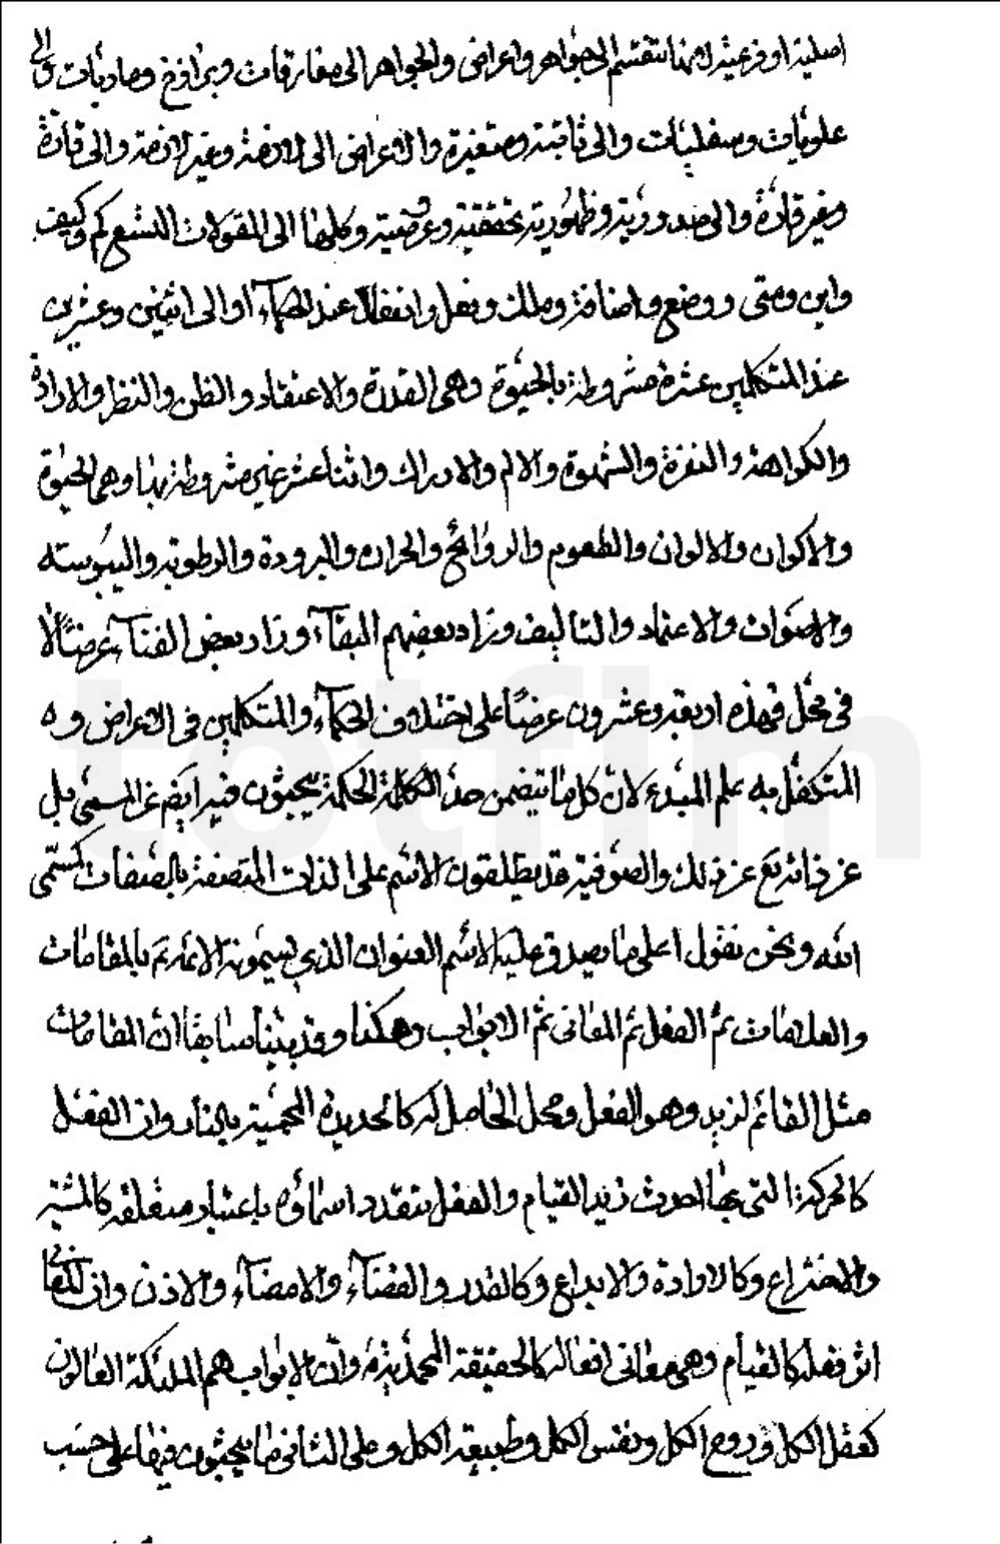 اصلية او فرعية لانها تنقسم الى جواهر واعراض والجواهر الى مفارقات وبرازخ وماديات والى
علويات وسفليات والى ثابتة ومتغيرة والاعراض الى لازمة وغير لازمة والى قارّة
وغير قارّة والى صدورية وظهورية تحققية وعروضية وكلها الى المقولات التسع كم وكيف
واين ومتى ووضع واضافة وملك وفعل وانفعال عند الحكمآء او الى اثنين وعشرين
عند المتكلمين عشرة مشروطة بالحيوة وهى القدرة والاعتقاد والظن والنظر والارادة
والكراهة والنفرة والشهوة والالم والادراك واثنا عشر غير مشروطة بها وهى الحيوة
والاكوان والالوان والطعوم والروائح والحرارة والبرودة والرطوبة واليبوسة
والاصوات والاعتماد والتاليف وزاد بعضهم البقآء وزاد بعض الفنآء عرضًا لا
فى محل فهذه اربعة وعشرون عرضًا على اختلاف الحكمآء والمتكلمين فى الاعراض و
المتكفل به علم المبدء لان كل ما تتضمن هذه الكلمة الحكمة يبحثون فيه ايضم عن المسمى بل
عن ذاته تع عن ذلك والصوفية قد يطلقون الاسم على الذات المتصفة بالصفات كمسمى
الله ونحن نقول اعلى ما يصدق عليه الاسم العنوان الذي يسمونه الائمة ع بالمقامات
والعلامات ثم الفعل ثم المعانى ثم الابواب وهكذا وقد بينا سابقا ان المقامات
مثل القائم لزيد وهو الفعل ومحل الحاصل له كالحديدة المحمية بالنار وان الفعل
كالحركة التى بها احدث زيد القيام والفعل تتعدد اسماؤه باعتبار متعلقه كالمشية
والاختراع وكالارادة والابداع وكالقدر والقضآء والامضآء والاذن وان المعانى
اثر فعله كالقيام وهى معانى افعاله كالحقيقة المحمدية وان الابواب هم الملئكة العالون
كعقل الكل وروح الكل ونفس الكل وطبيعة الكل وعلى الثانى ما يبحثون فيها على حسب